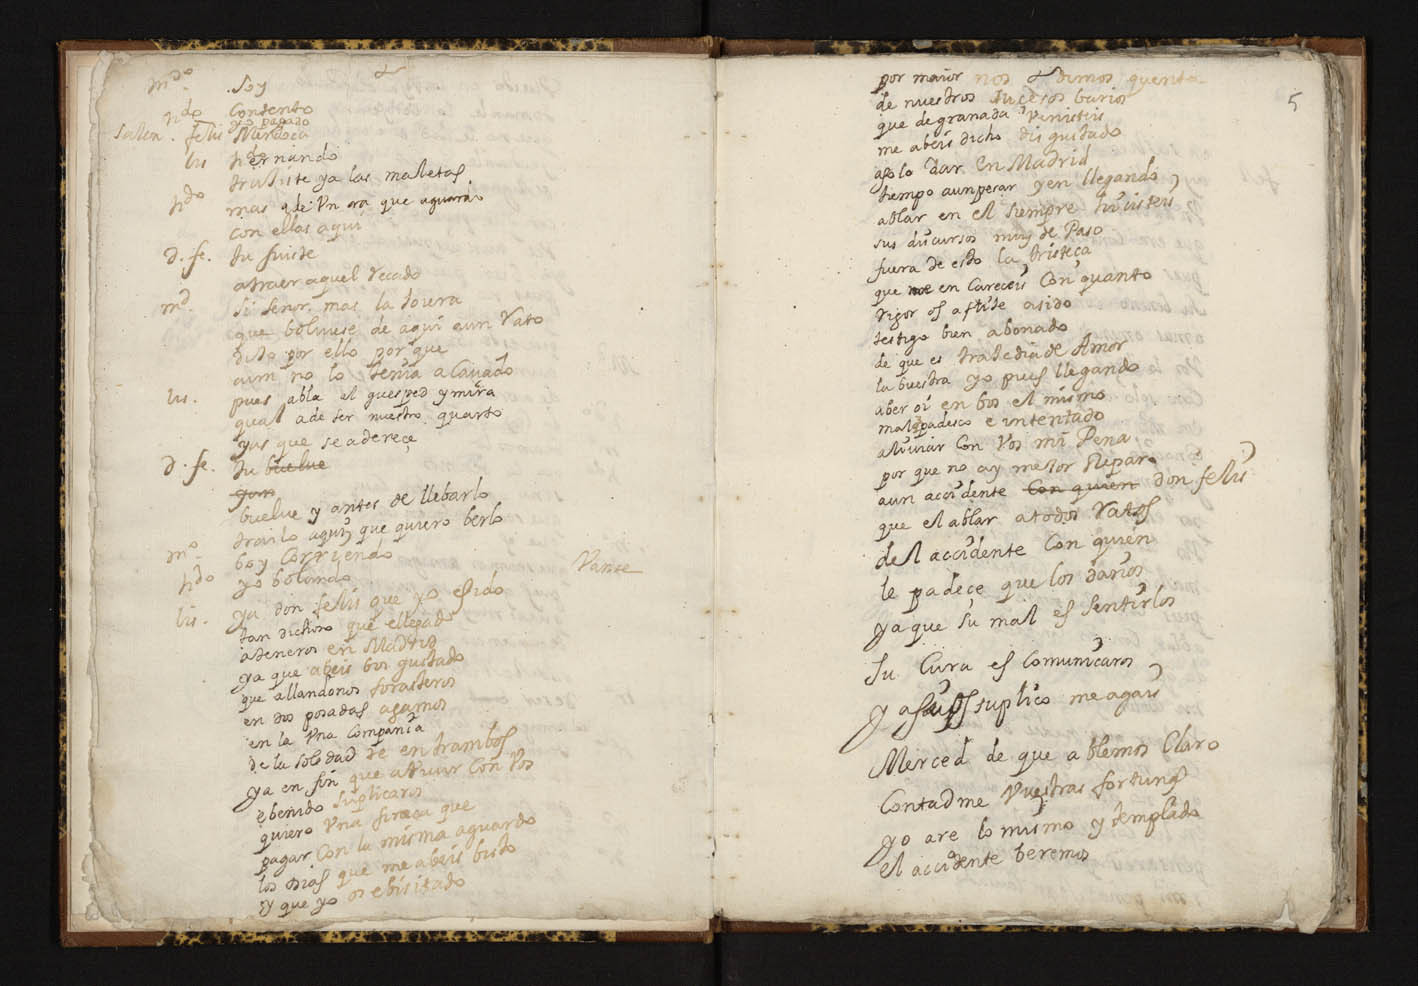 md.º soy
hdo contento
yo pagado
salen. felis Mendoça
lis hdo ernando
trajiste ya las maletas
hdo mas a de Un ora que aguardo
con ellas aqui
d. fe. tu fuiste
atraer aquel recado
md. si señor mas la tovera
que bolviese de aqui aun rato
dijo por ello por que
aun no lo tenia acavado
lis. pues abla al guesped y mira
qual a de ser nuestro quarto
y as que se adereçe
d. fe. tu buelve
y an
buelve y antes de llebarlo
trailo aqui que quiero berlo
mº. boy corriendo
hdo yo bolando Vanse
lis. ya don felis que yo e sido
tan dichoso que e llegado
a teneros en Madrid
ya que abeis bos gustado
que allandonos forasteros
en dos posadas agamos
en la Una Compañia
de la soledad de entrambos
ya en fin que a vivir con vos
e benido suplicaros
quiero Una fineça que
pagar con la misma aguardo
los dias que me abeis bisto
y que yo os e bisitado
5
por maior nos dimos quenta
de nuestros suçesos barios
que de granada Venisteis
me abeis dicho disgustado
a solo dar en Madrid
tiempo aun pesar y en llegando
ablar en el siempre huisteis
sus discursos muy de Paso
fuera de esto la tristeça
que me en Careceis Con quanto
rigor os aflije a sido
testigo bien abonado
de que es trajedia de Amor
la buestra yo pues llegando
aber oi en bos el mismo
mal que padesco e intentado
aliviar Con Vos mi Pena
por que no ay mejor Reparo
aun accidente Con quien don felis
que el ablar a todos ratos
del accidente Con quien
le padeçe que los daños
ya que su mal es sentirlos
su Cura es Comunicaros
y asi os suplico me agais
Merced de que ablemos Claro
Contadme Vuestras fortunas
yo are lo mismo y templado
el accidente beremos